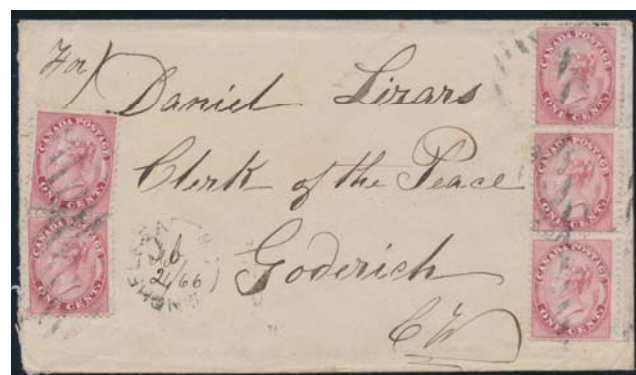 For)
Daniel Lizars
Clerk of the Peace
Goderich
CW
Feb
24/66
CANADA POSTAGE
ONE CENT
CANADA POSTAGE
ONE CENT
CANADA POSTAGE
ONE CENT
CANADA POSTAGE
ONE CENT
CANADA POSTAGE
ONE CENT